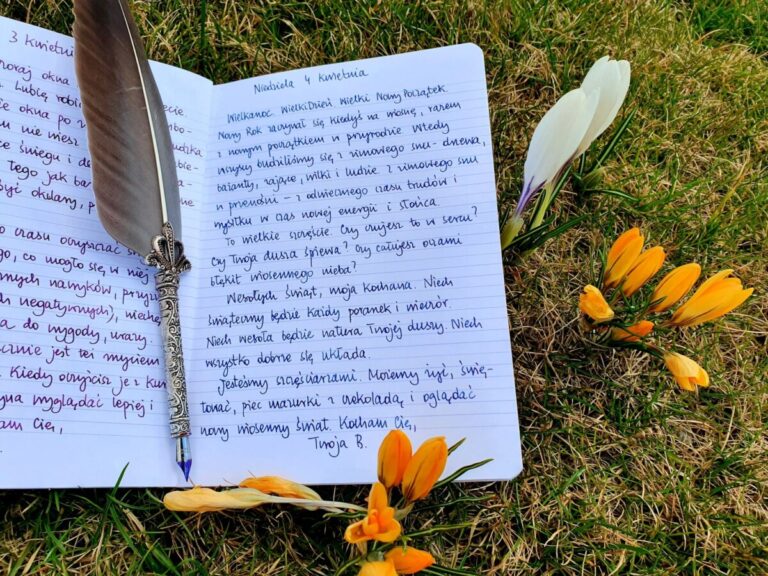 3 kwietni
okna
Lubię robi
okna po
nie wiesz
śniegu i
Tego jak
czasu oczyszczać
go, co mogło się w niej
nych nawyków,
negatywnych),
a do wygody, urazy.
cznie jest też myciem
Kiedy oczyścisz je z
wyglądać lepiej i
am Cię,
Niedziela 4 kwietnia
Wielkanoc. WielkiDzień. Wielki Nowy Początek.
Nowy Rok zaczynał się kiedyś na wiosnę, razem
z nowym początkiem w przyrodzie. Wtedy
wszyscy budziliśmy się z zimowego snu - drzewa,
bażanty, zające, wilki i ludzie z zimowego snu
w przenośni - z odwiecznego czasu trudów i
wysiłku w czas nowej energii i słońca.
To wielkie szczęście. Czy czujesz to w sercu?
Czy Twoja dusza śpiewa? Czy całujesz oczami
błękit wiosennego nieba?
Wesołych Świąt, moja Kochana. Niech
świąteczny będzie każdy poranek i wieczór.
Niech wesoła będzie natura Twojej duszy. Niech
wszystko dobrze się układa.
Jesteśmy szczęściarzami. Możemy żyć, świę-
tować, piec mazurki z czekoladą i oglądać
nowy wiosenny świat. Kocham Cię,
Twoja B.